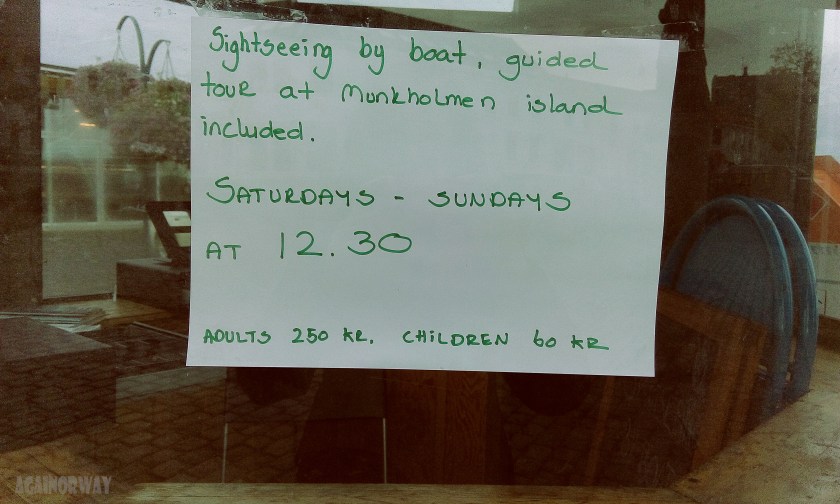 Sightseeing by boat, guided
tour at Munkholmen island
included.
SATURDAYS - SUNDAYS
AT 12.30
ADULTS 250 KR. CHILDREN 60 KR
AGAINORWAY